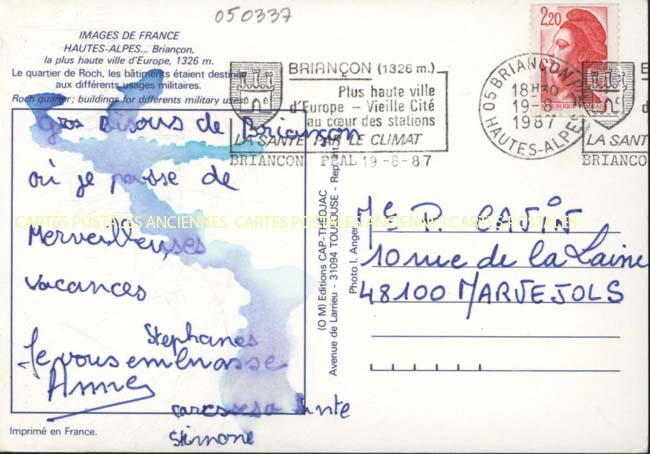 050337
IMAGES DE FRANCE
HAUTES-ALPES... Briançon,
la plus haute ville d'Europe, 1326 m.
Le quartier de Roch, les bâtiments étaient destinés
aux différents usages militaires.
Roch quarter; buildings for differents military uses.
gros Bisous de Briançon
où je passe de
Merveilleuses
vacances
Stephanes
Je vous embrasse
Annes
caresses a
Simone
Imprimé en France.
(O M) Editions CAP-THEOJAC
Avenue de Larrieu - 31094 TOULOUSE - Repr
Photo I. Anger
2,20
BRIANÇON (1326 m.)
Plus haute ville
d'Europe - Vieille Cité
au cœur des stations
LA SANTÉ PAR LE CLIMAT
BRIANCON PPAL 19-8-87
05 BRIANCON
18H30
19-8
1987
HAUTES-ALPES
B
LA SAN
BRIANÇO
CARTES POSTALES ANCIENNES CARTES POSTALES ANCIENNES CARTES POSTALES ANCIENNES
Me D. CAJÀT
10 rue de la Laine
48100 MARVEJOLS